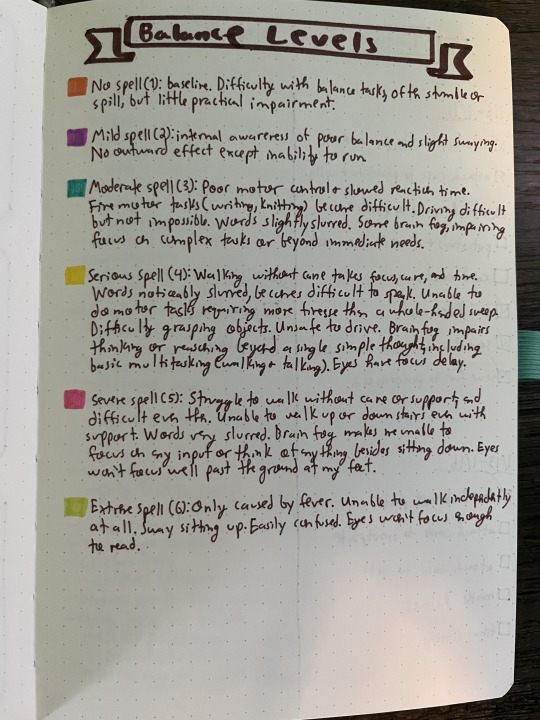 Balance Levels
No spell(1): baseline. Difficulty with balance tasks, often stumble or
spill, but little practical impairment.
Mild spell(2): internal awareness of poor balance and slight swaying.
No outward effect except inability to run.
Moderate spell(3): Poor motor control + slowed reaction time.
Fine motor tasks (writing, knitting) become difficult. Driving difficult
but not impossible. Words slightly slurred. Some brain fog, impairing
focus on complex tasks or beyond immediate needs.
Serious spell (4): Walking without cane takes focus, care, and time.
Words noticeably slurred, becomes difficult to speak. Unable to
do motor tasks requiring more finesse than a whole-handed sweep.
Difficulty grasping objects. Unsafe to drive. Brain fog impairs
thinking or reaching beyond a single simple thought, including
basic multitasking (walking + talking). Eyes have focus delay.
Severe spell(5): Struggle to walk without cane or support, and
difficult even then. Unable to walk up or down stairs even with
support. Words very slurred. Brain fog makes me unable to
focus on any input or think of anything besides sitting down. Eyes
won't focus well past the ground at my feet.
Extreme spell (6): Only caused by fever. Unable to walk independently
at all. Sway sitting up. Easily confused. Eyes won't focus enough
to read.